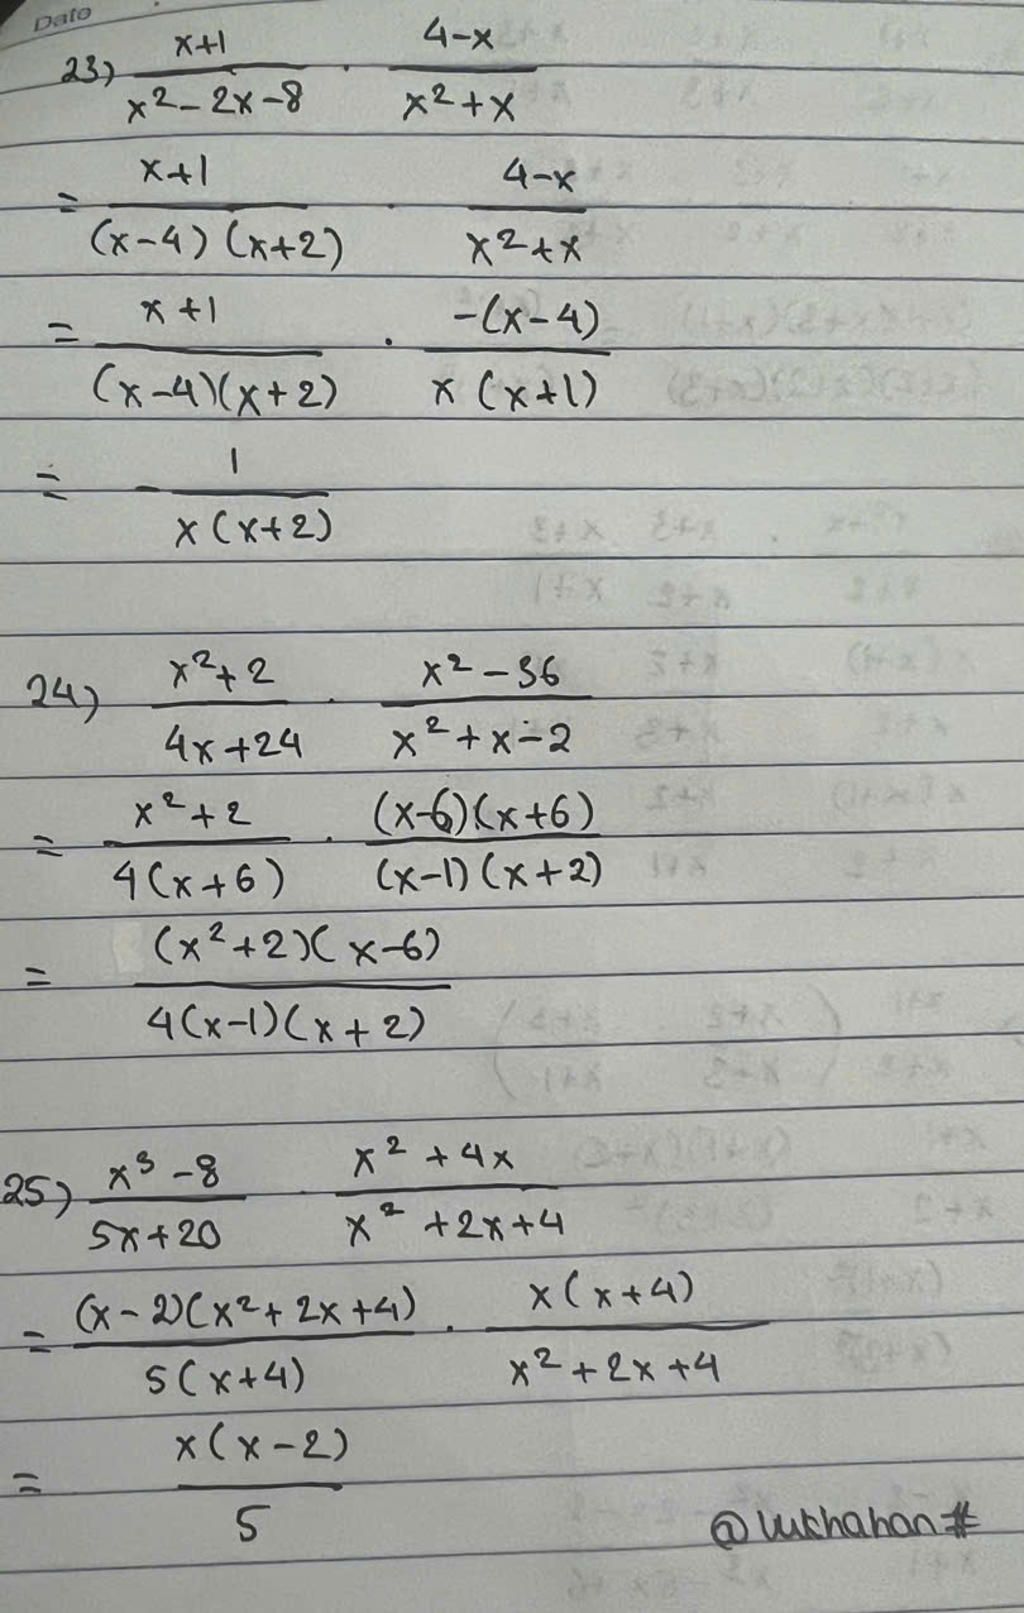 Date
23) x+1/x²-2x-8 · 4-x/x²+x
= x+1/(x-4)(x+2) · 4-x/x²+x
= x+1/(x-4)(x+2) · -(x-4)/x(x+1)
= - 1/x(x+2)
24) x²+2/4x+24 · x²-36/x²+x-2
= x²+2/4(x+6) · (x-6)(x+6)/(x-1)(x+2)
= (x²+2)(x-6)/4(x-1)(x+2)
25) x³-8/5x+20 · x²+4x/x²+2x+4
= (x-2)(x²+2x+4)/5(x+4) · x(x+4)/x²+2x+4
= x(x-2)/5